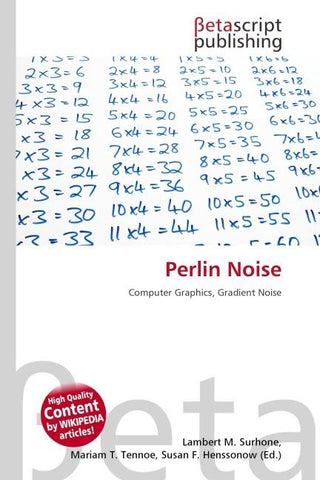 βetascript
publishing
1x3=3 1x4=4 1x5=5 1x6=6
2x3=6 2x4=8 2x5=10 2x6=12
3x3=9 3x4=12 3x5=15 3x6=18
4x3=12 4x4=16 4x5=20 4x6=24
5x3=15 5x4=20 5x5=25 5x6=30
x3=18 6x4=24 6x5=30 6x6=3
x3=21 7x4=28 7x5=35 7x6=
x3=24 8x4=32 8x5=40 8x6=
x3=27 9x4=36 9x5=45 9x6
x3=30 10x4=40 10x5=50 10x
x3=33 11x4=44 11x5=55 11
Perlin Noise
Computer Graphics, Gradient Noise
βeta
High Quality
Content
by WIKIPEDIA
articles!
Lambert M. Surhone,
Mariam T. Tennoe, Susan F. Henssonow (Ed.)